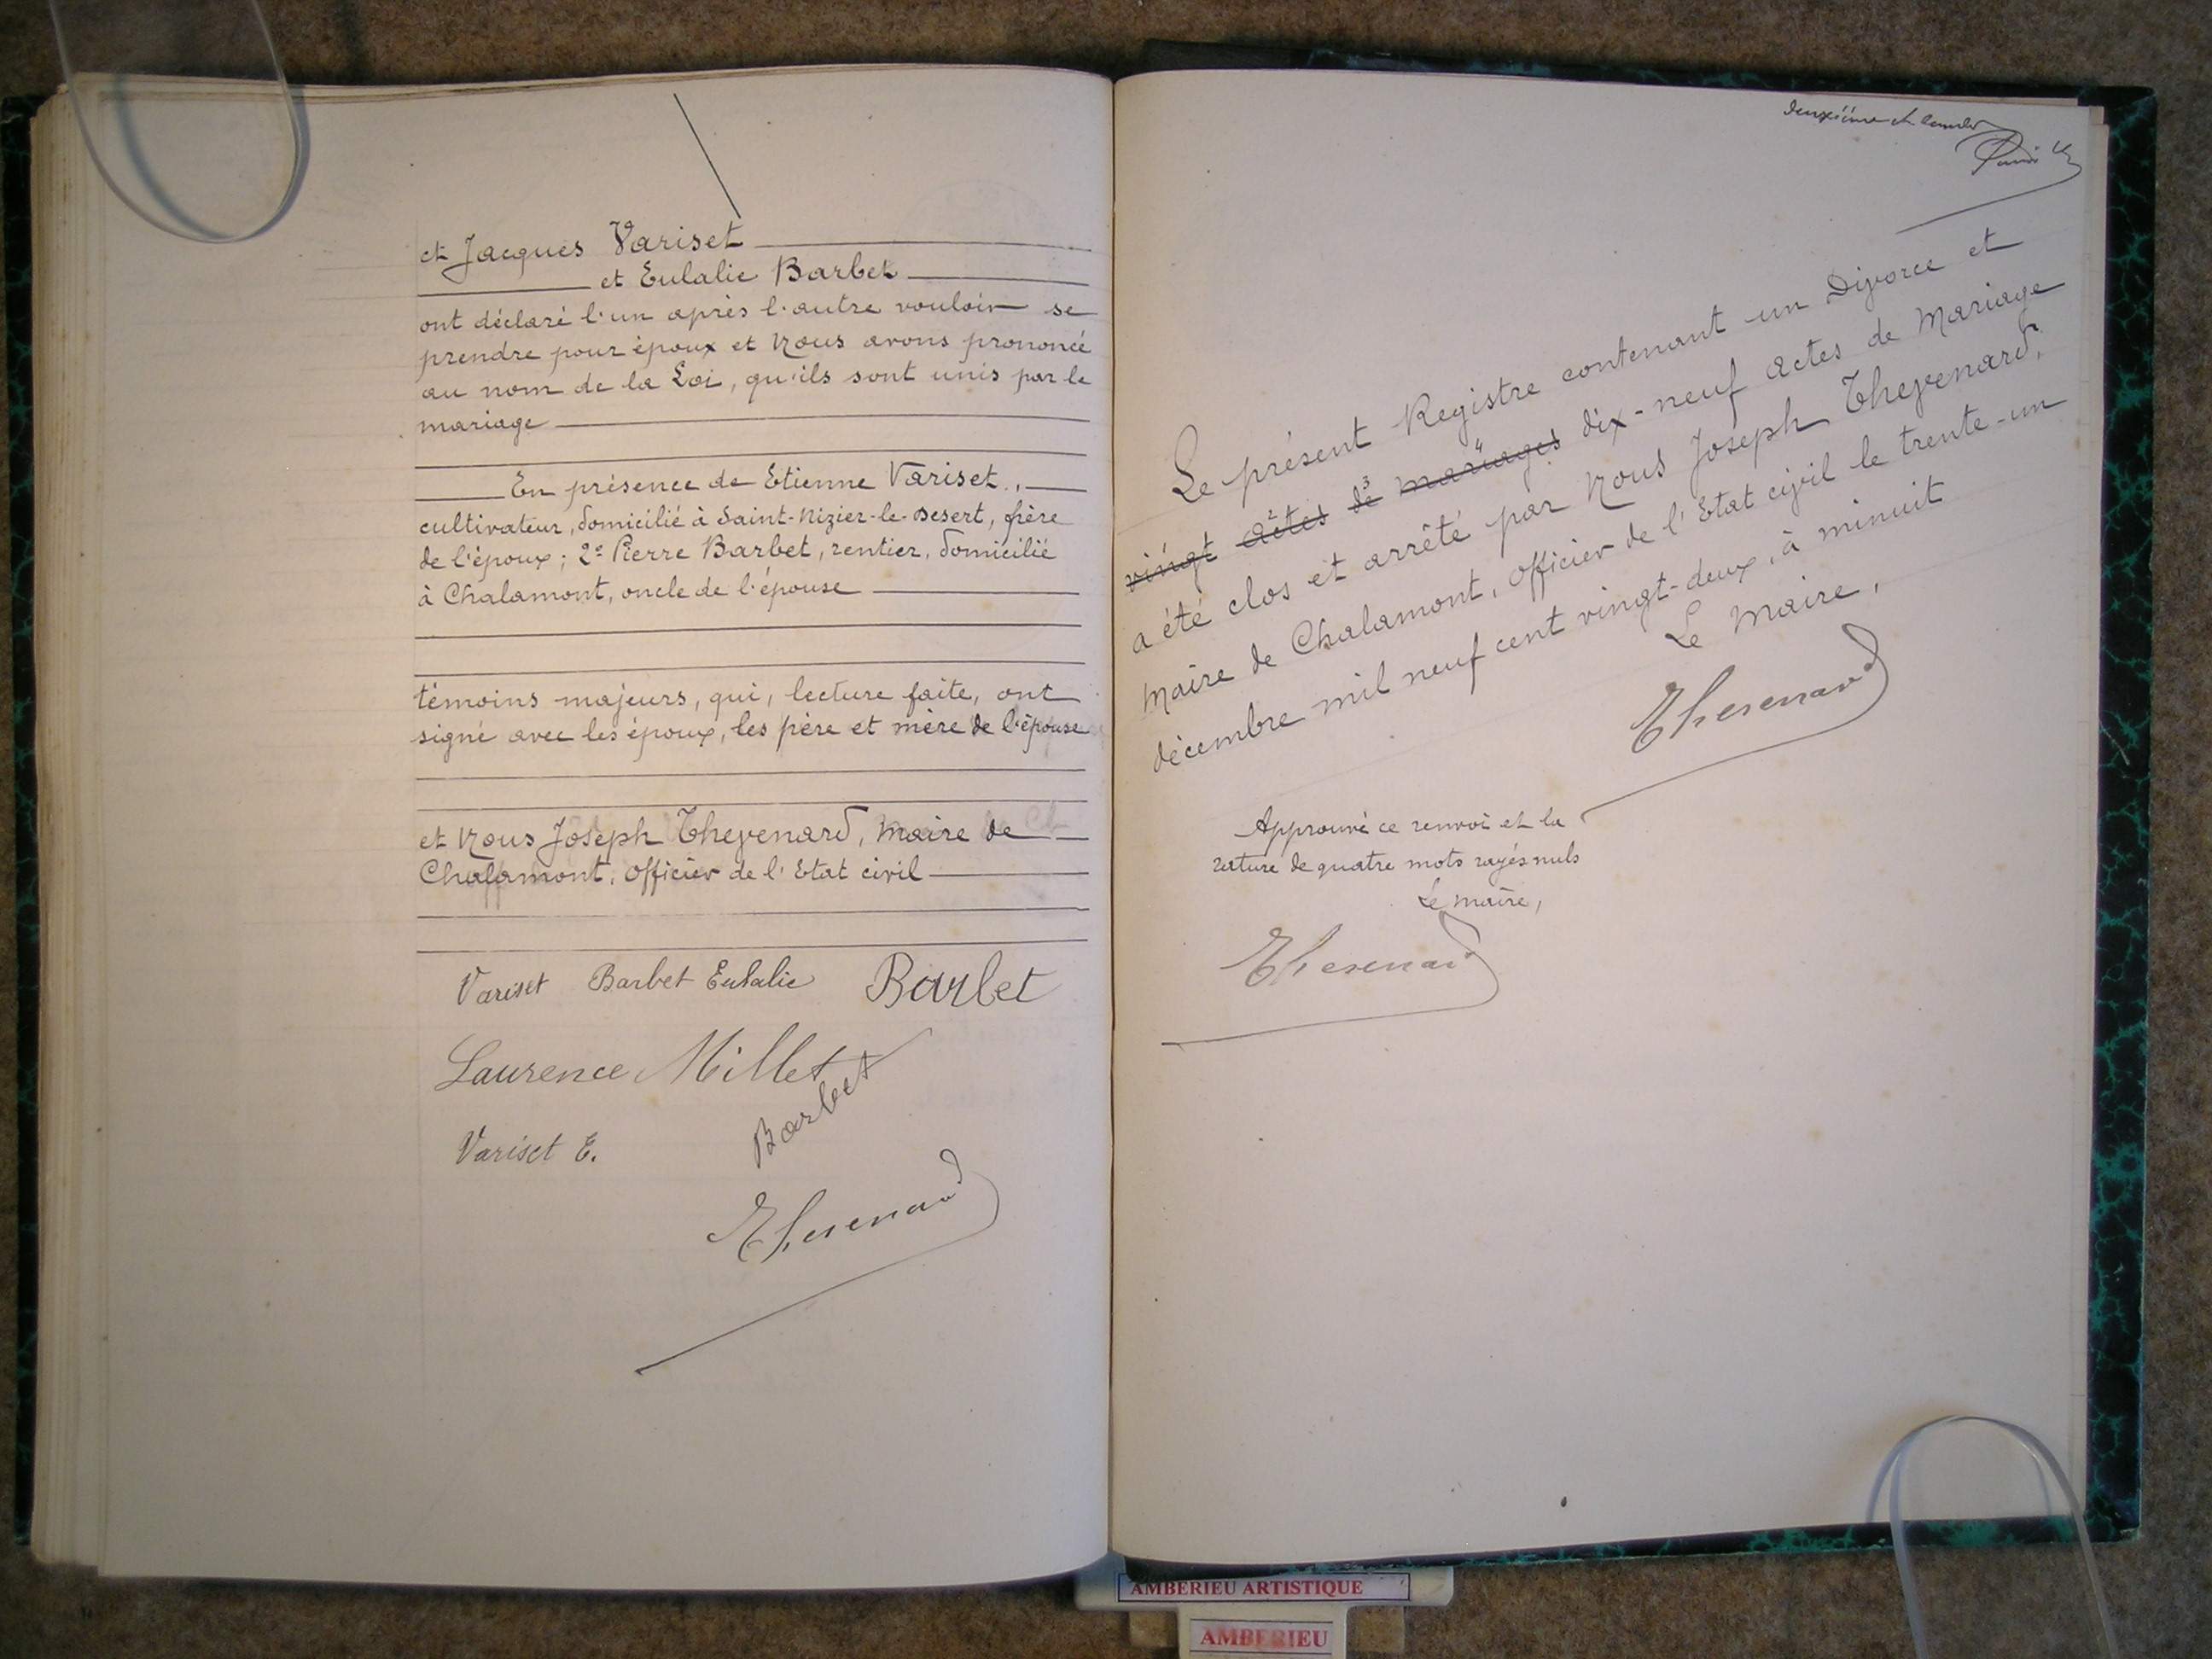 et Jacques Variset
et Eulalie Barbet
ont déclaré l'un après l'autre vouloir se
prendre pour époux et Nous avons prononcé
au nom de la Loi, qu'ils sont unis par le
mariage
En présence de Etienne Variset,
cultivateur, domicilié à Saint-Nizier-le-Desert, frère
de l'époux; 2e Pierre Barbet, rentier, domicilié
à Chalamont, oncle de l'épouse
témoins majeurs, qui, lecture faite, ont
signé avec les époux, les père et mère de l'épouse
et Nous Joseph Thevenard, Maire de
Chalamont, Officier de l'Etat civil
Variset Barbet Eulalie Barbet
Laurence Millet
Barbet
Variset E.
Thevenard
deuxième et
Le présent Registre contenant un Divorce et
vingt actes de mariages dix-neuf actes de Mariage
a été clos et arrêté par Nous Joseph Thevenard,
Maire de Chalamont, Officier de l'Etat civil le trente-un
décembre mil neuf cent vingt-deux, à minuit
Le Maire,
Thevenard
Approuvé ce renvoi et la
rature de quatre mots rayés nuls
Le maire,
Thevenard
AMBERIEU ARTISTIQUE
AMBERIEU